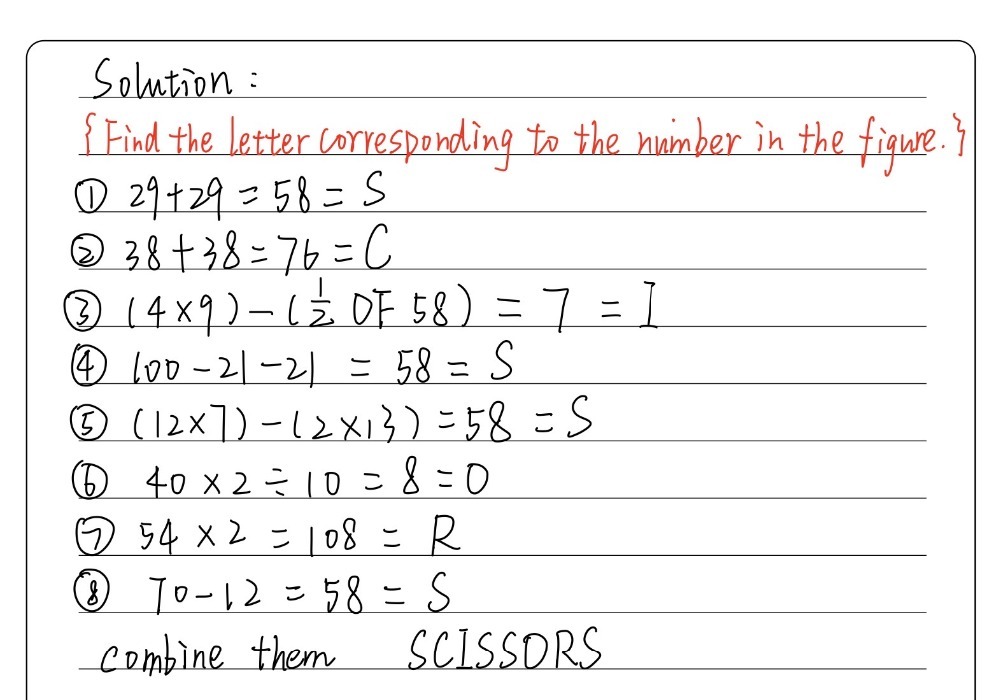 Solution:
{Find the letter corresponding to the number in the figure.}
① 29+29=58=S
② 38+38=76=C
③ (4×9)-(½ OF 58)=7=I
④ 100-21-21=58=S
⑤ (12×7)-(2×13)=58=S
⑥ 40×2÷10=8=O
⑦ 54×2=108=R
⑧ 70-12=58=S
combine them SCISSORS